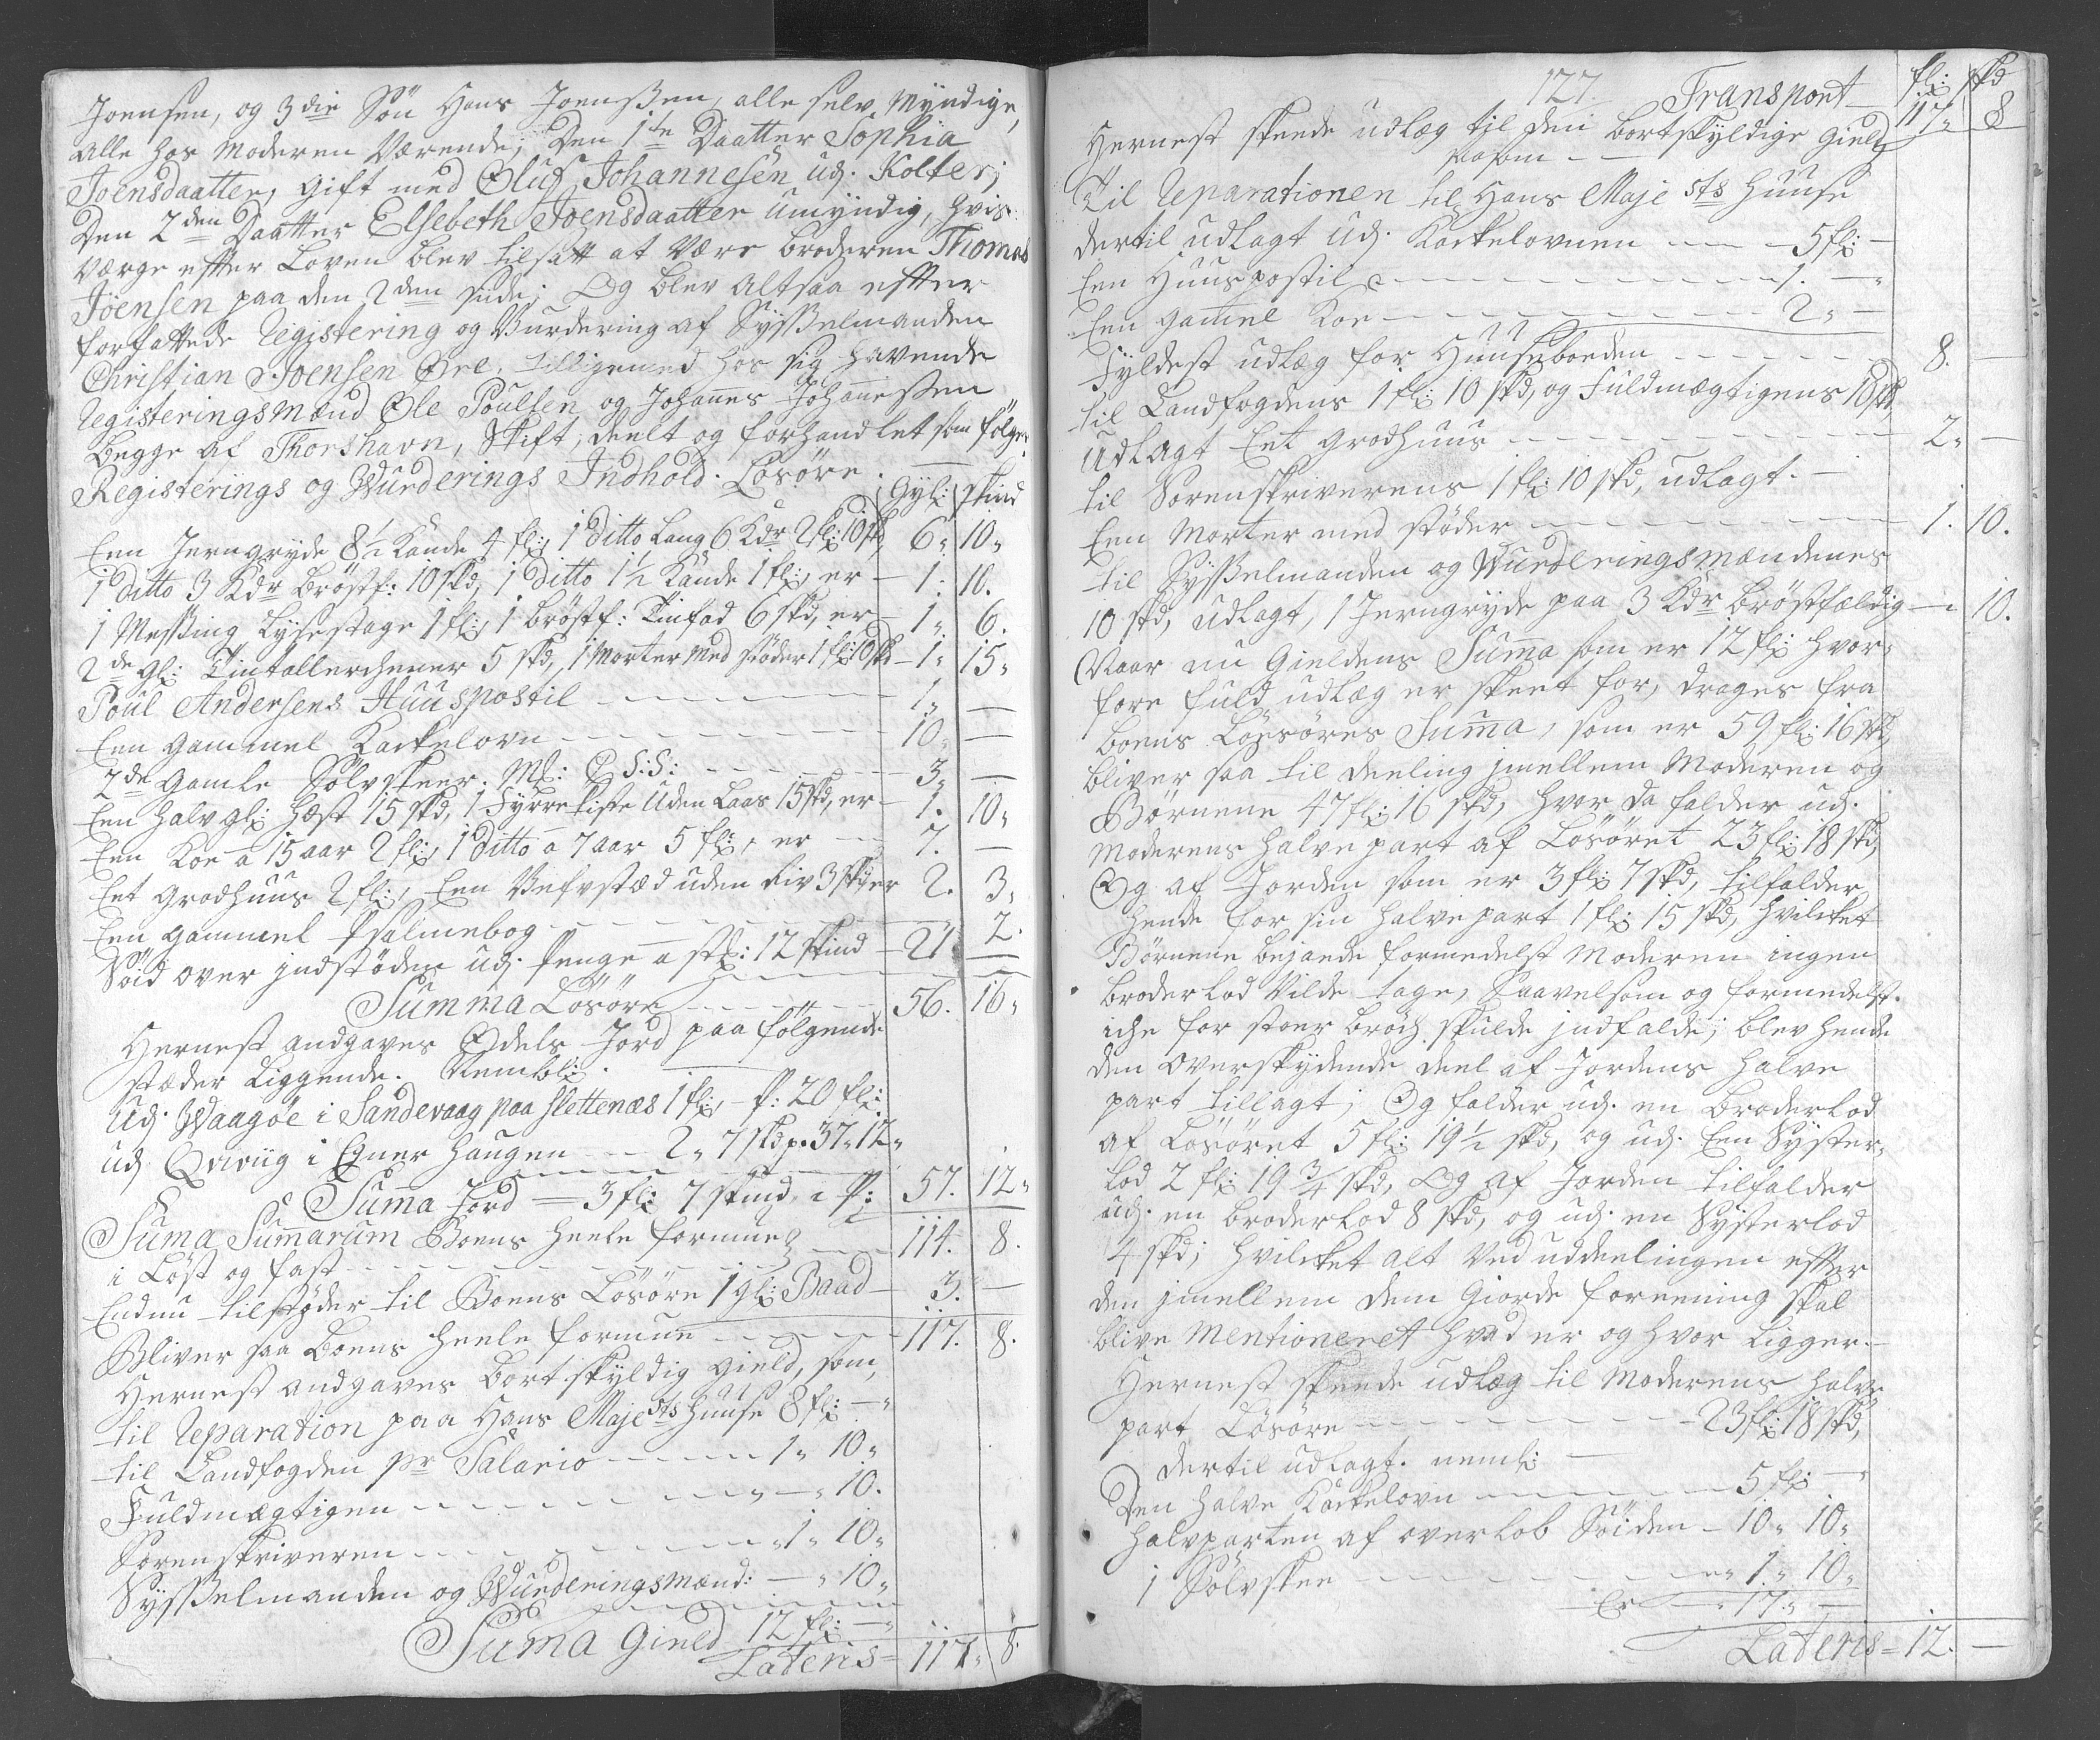 Joensen, og 3die Sön Hans Joenssen, alle selv Myndige,
alle hos Moderen Værende; Den 1te Daatter Sophia
Joensdaatter, gift med Oluf Johannesen udj. Kolter;
Den 2den Daatter Elsebeth Joensdaatter Umyndig, hvis
Værge efter Loven blev tilsatt at Være broderen Thomas
Joensen paa den 2den side; Og blev altsaa efter
forfattede Registering og Vurdering af Sysselmanden
Christian Joensen Øre, tilligemed hos sig havende
Registeringsmænd Ole Poulsen og Johannes Johannessen
begge af Thorshavn, Skift, deelt og forhandlet som fölger
Registerings og Wurderings Indhold. Lösöre. Gyl: Skind
Een Jerngryde 8½ Kande 4 fl:, 1 ditto Laug 6 Kdr 2 fl: 10 skd 6„ 10„
1 ditto 3 Kdr bröstf: 10 skd, 1 ditto 1½ Kande 1 fl:, er — 1. 10.
1 Messing Lysestage 1 fl:, 1 bröstf: Tinfad 6 skd, er — 1„ 6.
2de gl: Tintallerchener 5 skd, 1 Morter med stöder 1 fl: 10 skd — 1„ 15„
Poul Andersens Huuspostil — 1„ —
Een gammel Kackelovn — 10„ —
2de gamle Sölvskeer. M: — 3„ —
Een halv gl: Hest 15 skd, 1 Fyrre kiste Uden Laas 15 skd, er — 1. 10„
Een Koe a 15 aar 2 fl:, 1 ditto a 7 aar 5 fl:, er — 7. —
Eet grodhuus 2 fl:, Een Vefvstæd uden Riv 3 sk, er 2. 3„
Een gammel Psalmebog — „ 2.
Söid over jndstöden udj. Penge a st: 12 skind — 21 —
Summa Lösöre — 56. 16„
Hernest andgaves Odels Jord paa fölgende
stæder Liggende. Nembl:
Udj. Waagöe i Sandevaag paa Slettenæs 1 fl: — P: 20 fl:
udj. Qviviig i Egner Haugen — 2„ 7 skd p. 37„ 12„
Suma Jord — 3 fl: 7 skind, a P: 57. 12„
Suma Sumarum Boens heele formue
i Löst og fast — 114. 8.
Endnu tilstöder til Boens Lösöre 1 gl: Baad — 3. —
Bliver saa boens heele formue — 117. 8.
Hernest andgaves bortskyldig gield, som,
til Reparation paa Hans Majests huuse 8 fl: —„
til Landfogden pr Salario — 1„ 10„
Fuldmægtigen — „ — 10.
Sorenskriveren — „ 1„ 10„
Sysselmanden og Wurderingsmænd: — „ 10„
Suma Gield 12 fl: —„
Lateris = 117„ 8.
127. Transport — fl: skd
117„ 8
Hernest skeede udlæg til den bortskyldige gield
saasom —
Til Reparationen til Hans Majests Huuse
dertil udlagt udj. Kackelovnen — 5 fl: —
Een Huuspostil — 1. —„
Een gamel Koe — 2„ —
Fyldest udlæg for Huuseboeden — 8.
til Landfogdens 1 fl: 10 skd, og Fuldmægtigens 10 skd,
Udlagt Eet grodhuus — 2„ —
til Sorenskriverens 1 fl: 10 skd, udlagt. —
Een Morter med stöder — 1. 10.
til Sysselmanden og Wurderingsmændenes
10 skd, udlagt, 1 Jerngryde paa 3 Kdr bröstfældig — 10.
Naar nu Gieldens Suma som er 12 fl: hvor-
fore fuld udlæg er skeet for, drages fra
boens Lössöres Suma, som er 59 fl: 16 skd,
bliver saa til deeling jmellem Moderen og
Börnene 47 fl: 16 skd, hvor da falder udj.
Moderens halve part af Lösöret 23 fl: 18 skd,
Og af Jorden som er 3 fl: 7 skd, tilfalder
hende for sin halve part 1 fl: 15 skd, hvilcket
Börnene bejaede formedelst Moderen ingen
broderlod Vilde tage, Saavelsom og formedelst.
iche for stoer bröch skulde jndfalde; blev hende
den overskydende deel af Jordens halve
part tillagt; Og falder udj. en broderlod
af Lösöret 5 fl: 19½ skd, og udj. Een Syster-
lod 2 fl: 19¾ skd, Og af Jorden tilfalder
udj. en broderlod 8 skd, og udj. en Systerlod
4 skd; hvilcket alt Ved uddeelingen efter
den jmellem dem Giorde foreening skal
blive Mentioneret hvad er og hvor Ligger. —
Hernest skeede udlæg til Moderens halve
part Lösöre — 23 fl: 18 skd,
dertil udlagt. neml: —
Den halve Kackelovn — 5 fl: —„
halvparten af overlob Söiden — 10„ 10„
1 Sölvskee — 1„ 10„
Er — 17„ —
Lateris = 12. —